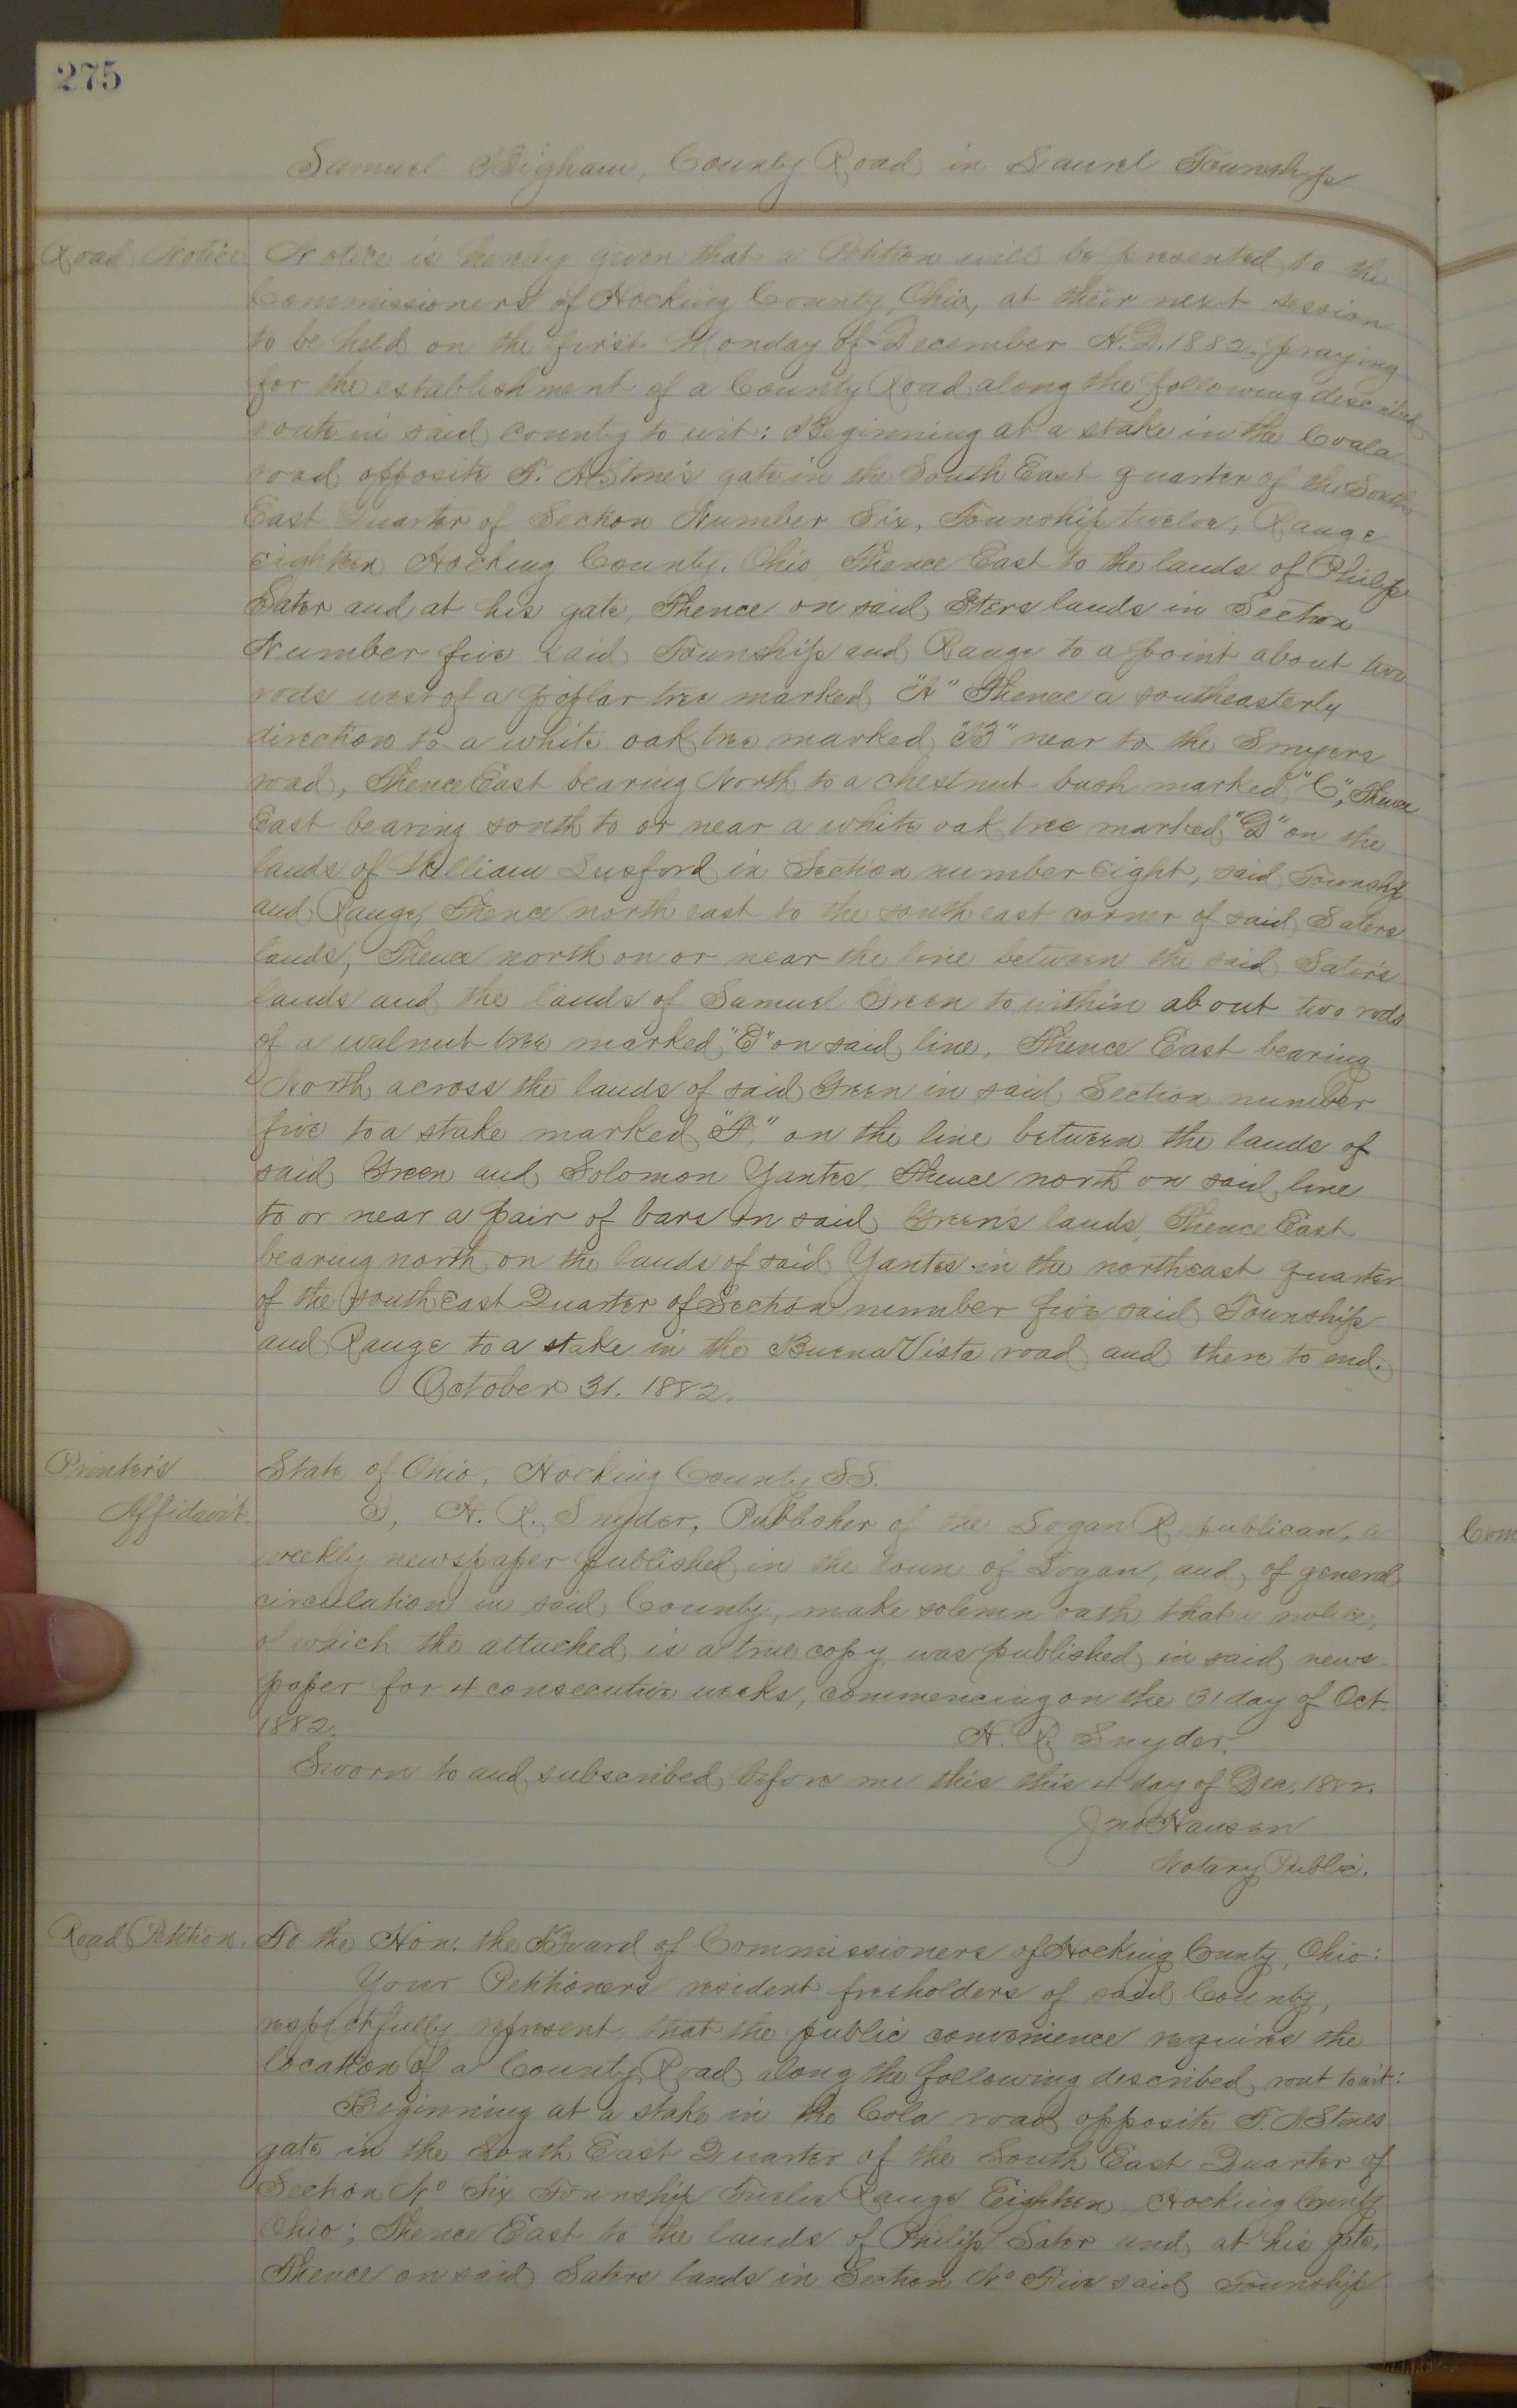 275
Samuel Bigham, County Road in Laurel Township
Road Notice
Notice is hereby given that a Petition will be presented to the
Commissioners of Hocking County, Ohio, at their next session
to be held on the first Monday of December A.D. 1882, praying
for the establishment of a County Road along the following described
route in said county to wit: Beginning at a stake in the
road opposite T. A. Stone's gate in the South East quarter of the South
East Quarter of Section Number Six, Township twelve, Range
eighteen Hocking County. Ohio, Thence East to the lands of Philip
Sater and at his gate, Thence on said lands in Section
Number five said Township and Range to a point about two
rods west of a poplar tree marked "A" Thence a southeasterly
direction to a white oak tree marked "B" near to the Smyers
road, Thence East bearing North to a chestnut bush marked "C", Thence
East bearing south to or near a white oak tree marked "D" on the
lands of William Lusford in Section number eight, said Township
and Range, Thence north east to the south east corner of said Saters
lands, Thence north on or near the line between the said Sater's
lands and the lands of Samuel Green to within about two rods
of a walnut tree marked "E" on said line, Thence East bearing
North across the lands of said Green in said Section number
five to a stake marked "F" on the line between the lands of
said Green and Solomon Yantes, Thence north on said line
to or near a pair of bars on said Green's lands, Thence East
bearing north on the lands of said Yantes in the northeast quarter
of the south east Quarter of Section number five said Township
and Range to a stake in the Buena Vista road and there to end.
October 31. 1882.
Printer's
Affidavit.
State of Ohio, Hocking County SS.
I, H. R. Snyder, Publisher of the Logan Republican, a
weekly newspaper published in the town of Logan, and of general
circulation in said County, make solemn oath that a notice,
of which the attached is a true copy was published in said news
paper for 4 consecutive weeks, commencing on the 31 day of Oct.
1882.
H. R. Snyder.
Sworn to and subscribed before me this this 4 day of Dec. 1882.
Jno Hansen
Notary Public.
Road Petition.
To the Hon. the Board of Commissioners of Hocking County, Ohio:
Your Petitioners resident freeholders of said County,
respectfully represent that the public convenience requires the
location of a County Road along the following described rout to wit:
Beginning at a stake in the Cola road opposite T. A. Stones
gate in the South East Quarter of the South East Quarter of
Section No Six Township Twelve Range Eighteen, Hocking County
Ohio; Thence East to the lands of Philip Sater and at his gate,
Thence on said Saters lands in Section No Five said Township
Com